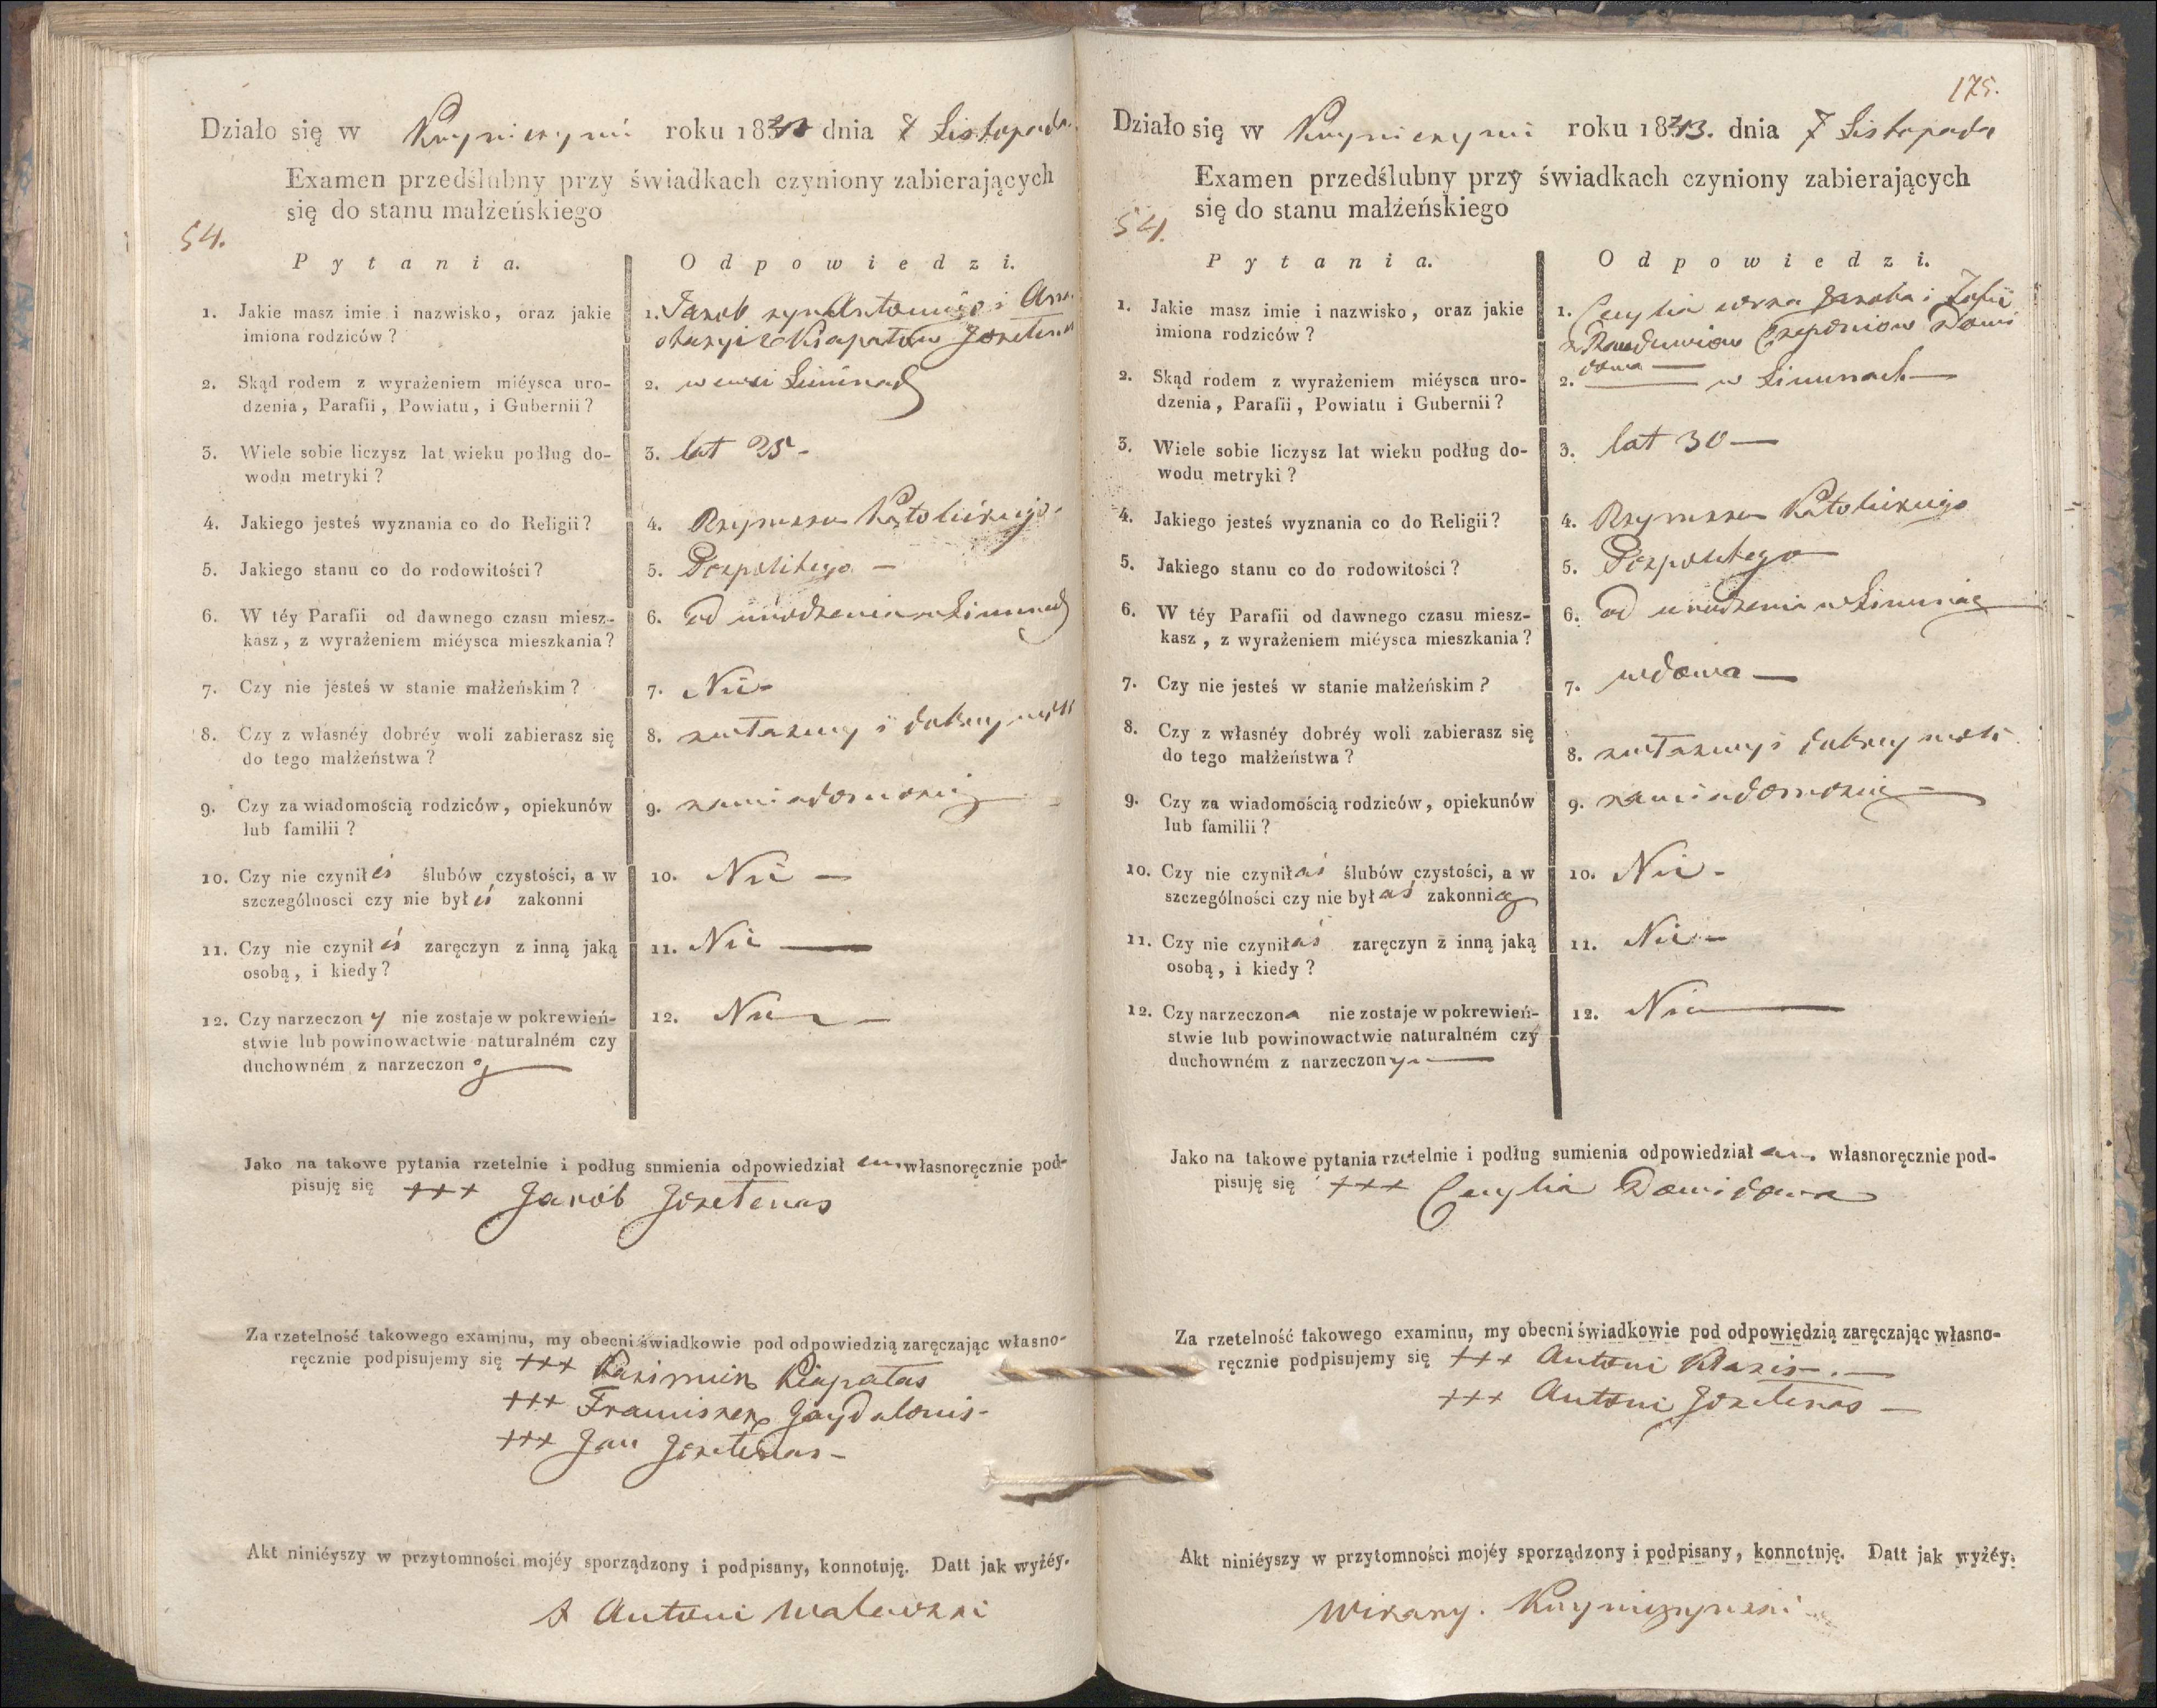 Działo się w Krynicznynie roku 1843 dnia 7 Listopada
Examen przedślubny przy świadkach czyniony zabierających
się do stanu małżeńskiego
54.
Pytania. Odpowiedzi.
1. Jakie masz imie i nazwisko, oraz jakie
imiona rodziców? 1. Jakob syn Antoniego i
2. Skąd rodem z wyrażeniem miéysca uro-
dzenia, Parafii, Powiatu, i Gubernii? 2. w wsi Liminach
3. Wiele sobie liczysz lat wieku podług do-
wodu metryki? 3. lat 25 -
4. Jakiego jesteś wyznania co do Religii? 4. Rzymsko Katolickiego
5. Jakiego stanu co do rodowitości? 5. Pospolitego -
6. W téy Parafii od dawnego czasu miesz-
kasz, z wyrażeniem miéysca mieszkania? 6. od urodzenia w Liminach
7. Czy nie jesteś w stanie małżeńskim? 7. Nie -
8. Czy z własnéy dobréy woli zabierasz się
do tego małżeństwa? 8. z własney i dobrey woli
9. Czy za wiadomością rodziców, opiekunów
lub familii? 9. za wiadomością
10. Czy nie czynił eś ślubów czystości, a w
szczególnosci czy nie był eś zakonni 10. Nie -
11. Czy nie czynił eś zaręczyn z inną jaką
osobą, i kiedy? 11. Nie -
12. Czy narzeczon y nie zostaje w pokrewień-
stwie lub powinowactwie naturalném czy
duchowném z narzeczon ą 12. Nie -
Jako na takowe pytania rzetelnie i podług sumienia odpowiedział em własnoręcznie pod-
pisuję się +++ Jakób Jozetenas
Za rzetelność takowego examinu, my obecni świadkowie pod odpowiedzią zaręczając własno-
ręcznie podpisujemy się +++ Kazimierz Kiapatas
+++ Franciszek Gaydalonis -
+++ Jan Jozetenas -
Akt niniéyszy w przytomności mojéy sporządzony i podpisany, konnotuję. Datt jak wyżéy.
X Antoni Walewski
175.
Działo się w Krynicznynie roku 1843. dnia 7 Listopada
Examen przedślubny przy świadkach czyniony zabierających
się do stanu małżeńskiego
54.
Pytania. Odpowiedzi.
1. Jakie masz imie i nazwisko, oraz jakie
imiona rodziców? 1. Cecylia córka Jakoba i Zofii
2. Skąd rodem z wyrażeniem miéysca uro-
dzenia, Parafii, Powiatu i Gubernii? 2. w Liminach
3. Wiele sobie liczysz lat wieku podług do-
wodu metryki? 3. lat 30 -
4. Jakiego jesteś wyznania co do Religii? 4. Rzymsko Katolickiego
5. Jakiego stanu co do rodowitości? 5. Pospolitego
6. W téy Parafii od dawnego czasu miesz-
kasz, z wyrażeniem miéysca mieszkania? 6. od urodzenia w Liminach
7. Czy nie jesteś w stanie małżeńskim? 7. wdowa -
8. Czy z własnéy dobréy woli zabierasz się
do tego małżeństwa? 8. z własney i dobrey woli
9. Czy za wiadomością rodziców, opiekunów
lub familii? 9. za wiadomością -
10. Czy nie czynił aś ślubów czystości, a w
szczególności czy nie był aś zakonnicą 10. Nie -
11. Czy nie czynił aś zaręczyn z inną jaką
osobą, i kiedy? 11. Nie -
12. Czy narzeczona nie zostaje w pokrewień-
stwie lub powinowactwie naturalném czy
duchowném z narzeczonym 12. Nie -
Jako na takowe pytania rzetelnie i podług sumienia odpowiedział am własnoręcznie pod-
pisuję się +++ Cecylia Dawidowa
Za rzetelność takowego examinu, my obecni świadkowie pod odpowiedzią zaręczając własno-
ręcznie podpisujemy się +++ Antoni Klazis -
+++ Antoni Jozetenas -
Akt niniéyszy w przytomności mojéy sporządzony i podpisany, konnotuję. Datt jak wyżéy.
Wikary.